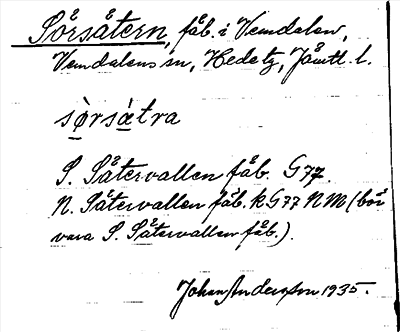 Sörsåtern, fäb. i Vemdalen,
Vemdalens sn, Hede tg, Jämtl. l.
sò̱rsæ̱tra
S. Såtervallen fäb. G77.
N. Såtervallen fäb. k G77 NM (bör
vara S. Såtervallen fäb.).
Johan Andersson 1935.